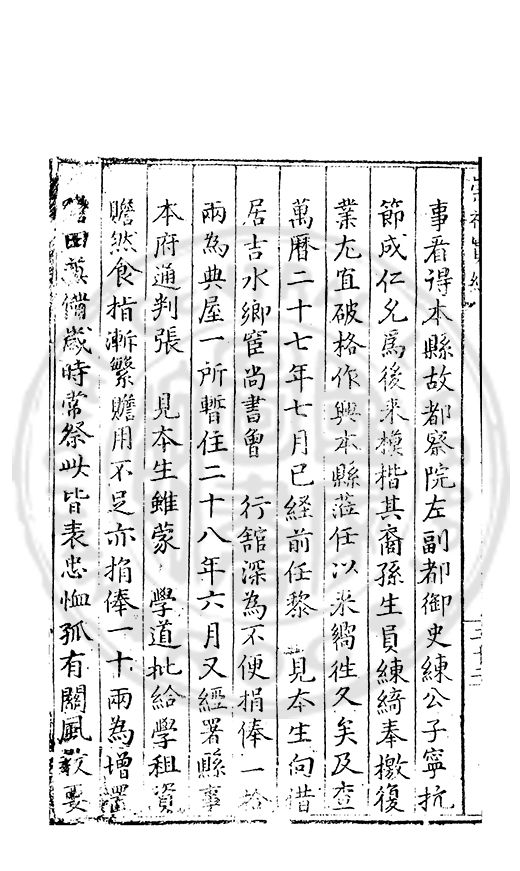 事看得本縣故都察院左副都御史練公子寧抗
節成仁允爲後來模楷其裔孫生員練綺奉檄復
業尤宜破格作興本縣蒞任以来嚮徃久矣及查
萬曆二十七年七月已経前任黎 見本生向借
居吉水鄉宦尚書曾 行館深為不便捐俸一拾
兩為典屋一所暫住二十八年六月又經署縣事
本府通判張 見本生雖蒙 學道批給學租資
贍然食指漸繁贍用不足亦捐俸一十兩為增置
田 備歲時常祭此皆表忠恤孤有關風教要